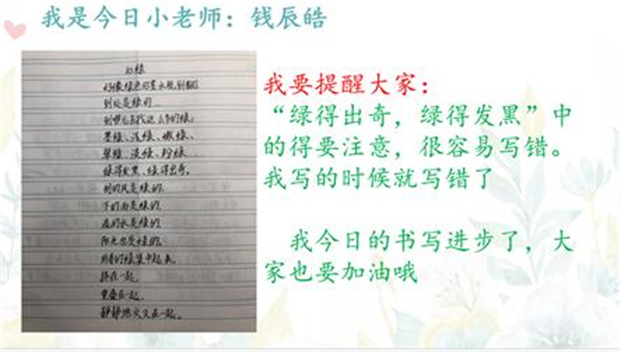 我是今日小老师：钱辰皓
绿
好像绿色的墨水瓶倒翻了
到处是绿的
到哪儿去找这么多的绿：
墨绿、浅绿、嫩绿、
翠绿、淡绿、粉绿
绿得发黑、绿得出奇。
刮的风是绿的，
下的雨是绿的，
流的水是绿的，
阳光也是绿的。
所有的绿集中起来，
挤在一起，
重叠在一起，
静静地交叉在一起。
我要提醒大家：
“绿得出奇，绿得发黑”中
的得要注意，很容易写错。
我写的时候就写错了
我今日的书写进步了，大
家也要加油哦